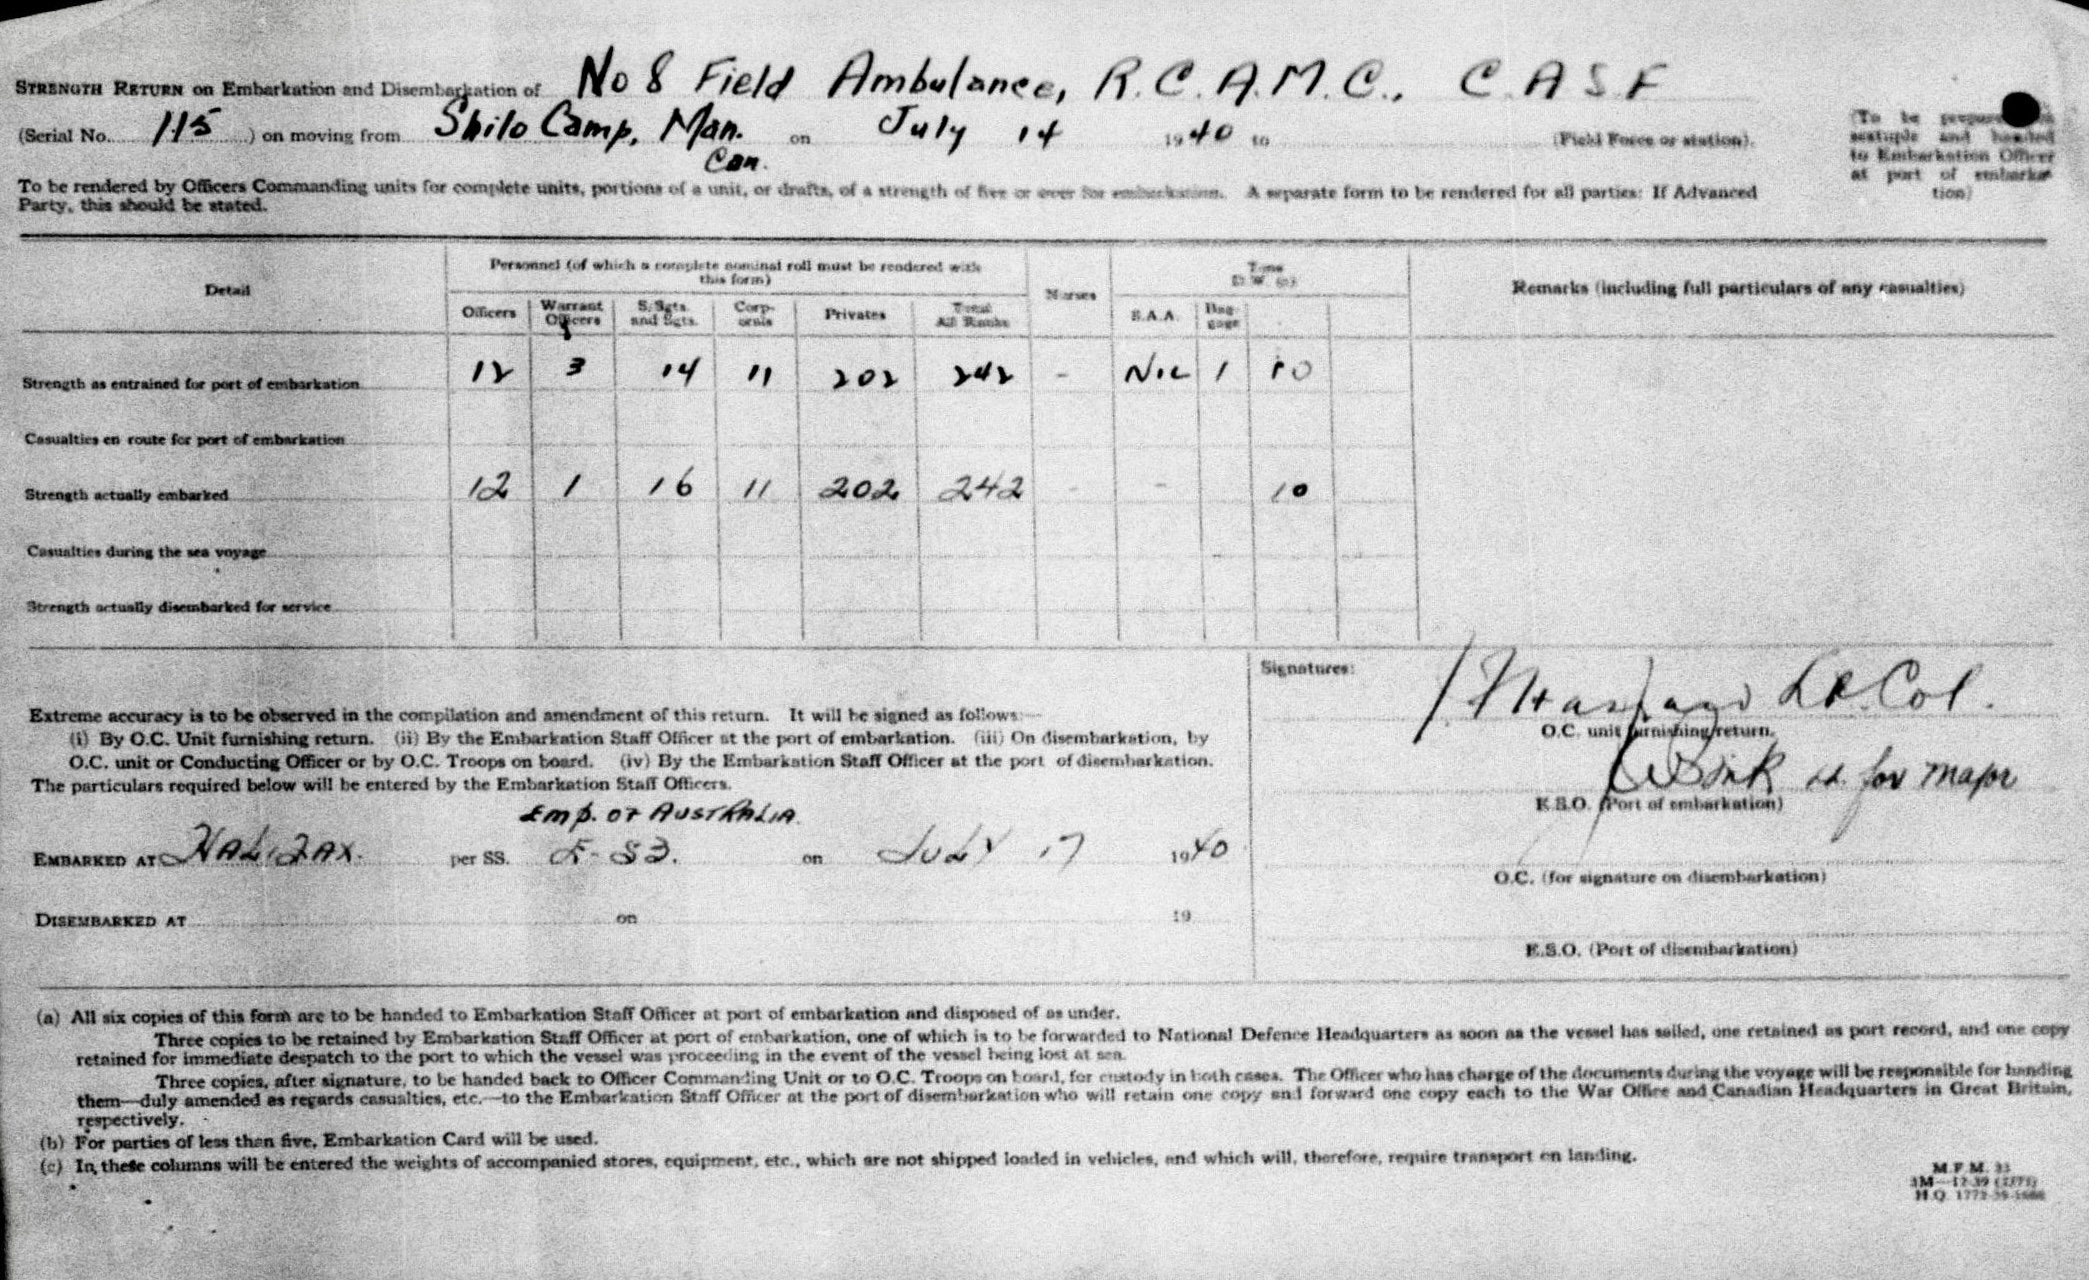 STRENGTH RETURN on Embarkation and Disembarkation of No 8 Field Ambulance, R.C.A.M.C., C A S F
(Serial No. 115 ) on moving from Shilo Camp, Man. Can. on July 14 1940 to (Field Force or station).
(To be prepared in sextuple and handed to Embarkation Officer at port of embarkation)
To be rendered by Officers Commanding units for complete units, portions of a unit, or drafts, of a strength of five or over for embarkation. A separate form to be rendered for all parties: If Advanced
Party, this should be stated.
Detail
Personnel (of which a complete nominal roll must be rendered with
this form)
Nurses
Tons
Remarks (including full particulars of any casualties)
Officers Warrant Officers S. Sgts. and Sgts. Corporals Privates Total All Ranks S.A.A. Baggage
Strength as entrained for port of embarkation 12 3 14 11 202 242 - NIL 1 10
Casualties en route for port of embarkation
Strength actually embarked 12 1 16 11 202 242 - - 10
Casualties during the sea voyage
Strength actually disembarked for service
Signatures:
Lt. Col.
O.C. unit furnishing return.
for Major
E.S.O. (Port of embarkation)
O.C. (for signature on disembarkation)
E.S.O. (Port of disembarkation)
Extreme accuracy is to be observed in the compilation and amendment of this return. It will be signed as follows:—
(i) By O.C. Unit furnishing return. (ii) By the Embarkation Staff Officer at the port of embarkation. (iii) On disembarkation, by
O.C. unit or Conducting Officer or by O.C. Troops on board. (iv) By the Embarkation Staff Officer at the port of disembarkation.
The particulars required below will be entered by the Embarkation Staff Officers.
EMP. OF AUSTRALIA
EMBARKED AT HALIFAX. per SS. E-53. on JULY 17 1940
DISEMBARKED AT on 19
(a) All six copies of this form are to be handed to Embarkation Staff Officer at port of embarkation and disposed of as under.
Three copies to be retained by Embarkation Staff Officer at port of embarkation, one of which is to be forwarded to National Defence Headquarters as soon as the vessel has sailed, one retained as port record, and one copy
retained for immediate despatch to the port to which the vessel was proceeding in the event of the vessel being lost at sea.
Three copies, after signature, to be handed back to Officer Commanding Unit or to O.C. Troops on board, for custody in both cases. The Officer who has charge of the documents during the voyage will be responsible for handing
them—duly amended as regards casualties, etc.—to the Embarkation Staff Officer at the port of disembarkation who will retain one copy and forward one copy each to the War Office and Canadian Headquarters in Great Britain,
respectively.
(b) For parties of less than five, Embarkation Card will be used.
(c) In these columns will be entered the weights of accompanied stores, equipment, etc., which are not shipped loaded in vehicles, and which will, therefore, require transport on landing.
M.F.M. 33
H.Q.